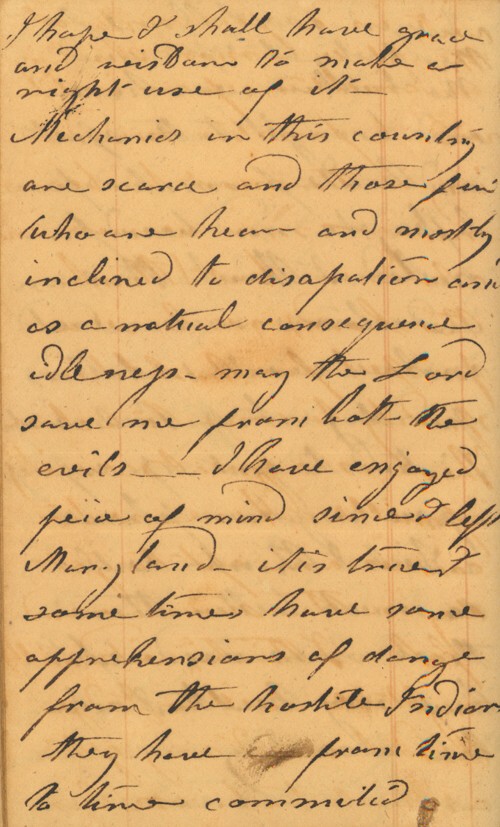 I hope I shall have grace
and wisdom to make a
right use of it —
Mechanics in this country
are scarce and those few
who are hear and mostly
inclined to disapation and
as a natual consequence
idleness — may the Lord
save me from both the
evils — — I have engoyed
peice of mind since I left
Maryland — it is true I
some times have some
apprehensions of dange
from the hostile Indians
they have from time
to time commited